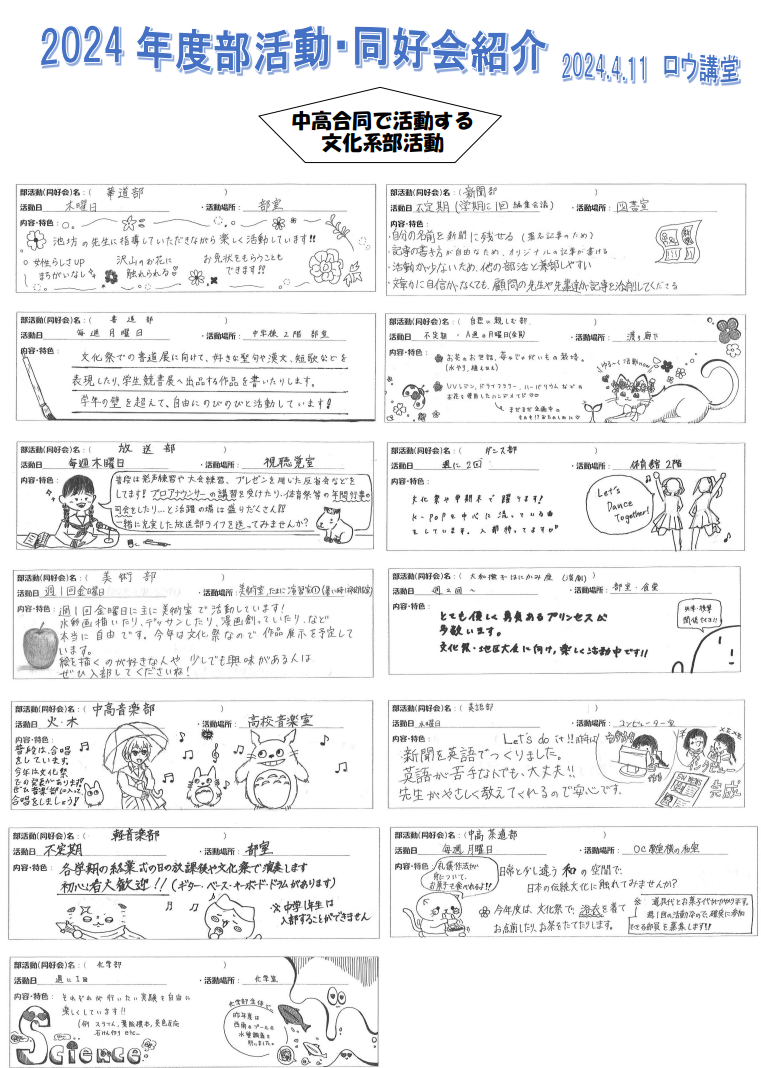 2024年度部活動・同好会紹介
2024.4.11 ロウ講堂
中高合同で活動する
文化系部活動
部活動(同好会)名:( 華道部 )
活動日 木曜日 ・活動場所: 部室
内容・特色:
池坊の先生に指導していただきながら楽しく活動しています!!
女性らしさUP
まちがいなし
沢山のお花に
触れられる
お免状をもらうことも
できます!!
部活動(同好会)名:( 新聞部 )
活動日 不定期(学期に1回 編集会議) ・活動場所: 図書室
内容・特色:
・自分の名前を新聞に残せる(署名記事のため)
・記事の書き方が自由なため、オリジナルの記事が書ける
・活動が少ないため、他の部活と兼部しやすい
・文章力に自信がなくても、顧問の先生や先輩達が記事を添削してくださる
部活動(同好会)名:( 書道部 )
活動日 毎週月曜日 ・活動場所: 中学棟2階 部室
内容・特色:
文化祭での書道展に向けて、好きな聖句や漢文、短歌などを
表現したり、学生競書展へ出品する作品を書いたりします。
学年の壁を超えて、自由にのびのびと活動しています!
部活動(同好会)名:( 自然に親しむ部 )
活動日 不定期・八週の月曜日(全員) ・活動場所: 渡り廊下
内容・特色:
お花のお世話、苺やじゃがいもの栽培。
(水やり、植えかえ)
ゆる〜く活動now
UVレジン、ドライフラワー、ハーバリウムなどの
お花を使用したハンドメイド
部活動(同好会)名:( 放送部 )
活動日 毎週木曜日 ・活動場所: 視聴覚室
内容・特色:
普段は発声練習や大会練習、プレゼンを用いた反省会などを
してます! プロアナウンサーの講習を受けたり、体育祭等の年間行事の
司会をしたり…と活躍の場は盛りだくさん!!
一緒に充実した放送部ライフを送ってみませんか?
部活動(同好会)名:( ダンス部 )
活動日 週に2回 ・活動場所: 体育館2階
内容・特色:
文化祭や中期末で踊ります!
K-POPを中心に流っている曲
をしています。入部待ってますね
Let's
Dance
Together!
部活動(同好会)名:( 美術部 )
活動日 週1回金曜日 ・活動場所: 美術室、たまに演習室①(暑い時は視聴覚室)
内容・特色: 週1回金曜日に主に美術室で活動しています!
水彩画描いたり、デッサンしたり、漫画創っていたり、など
本当に自由です。今年は文化祭なので作品展示を予定して
います。
絵を描くのが好きな人や少しでも興味がある人は
ぜひ入部してくださいね!
部活動(同好会)名:( 大和撫子はにかみ座 (演劇) )
活動日 週2回〜 ・活動場所: 部室・食堂
内容・特色:
とても優しく勇気あるプリンセスが
多数います。
文化祭・地区大会に向け、楽しく活動中です!!
部活動(同好会)名:( 中高音楽部 )
活動日 火・木 ・活動場所: 高校音楽室
内容・特色:
普段は、合唱
をしています。
今年は文化祭
での発表があります!
ぜひ音楽部に入って、
合唱をしましょう!
部活動(同好会)名:( 英語部 )
活動日 水曜日 ・活動場所: コンピューター室
内容・特色:
Let's do it!! 昨年は
新聞を英語でつくりました。
英語が苦手なんでも、大丈夫!!
先生がやさしく教えてくれるので安心です。
インタビュー
完成
部活動(同好会)名:( 軽音楽部 )
活動日 不定期 ・活動場所: 部室
内容・特色: 各学期の終業式の日の放課後や文化祭で演奏します
初心者大歓迎!!(ギター・ベース・キーボード・ドラムがあります)
※中学1年生は
入部することができません
部活動(同好会)名:( 中高茶道部 )
活動日 毎週月曜日 ・活動場所: OC教室横の和室
内容・特色:
礼儀作法が
身について、
お菓子も食べれるよ!!
日常と少し違う和の空間で、
日本の伝統文化に触れてみませんか?
今年度は、文化祭で、浴衣を着て
お点前したり、お茶をたてたりします。
※道具代とお菓子代がかかります。
週1回の活動なので、確実に参加
できる部員を募集します!!
部活動(同好会)名:( 化学部 )
活動日 週に1回 ・活動場所: 化学室
内容・特色: それぞれが行いたい実験を自由に
楽しくしています!!
(例 スライム、葉脈標本、炎色反応
石けん作り etc...
化学部全体で、
昨年度は
Science